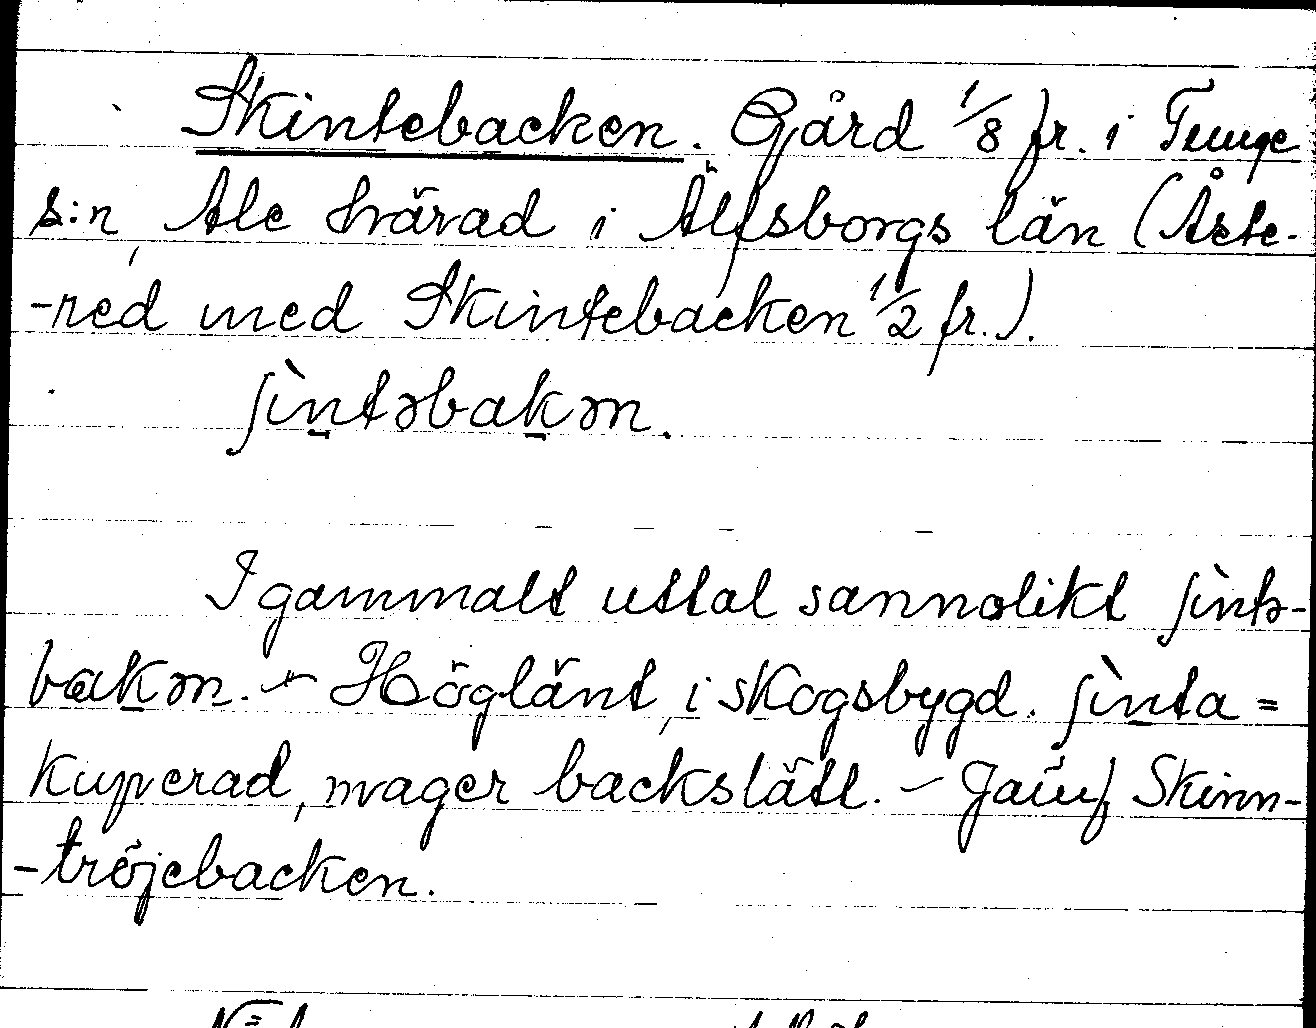 Skintebacken. Gård 1/8 fr. i Tunge
s:n, Ale härad i Älfsborgs län (Åste-
-red med Skintebacken 1/2 fr.).
ʃìntəbakən.
I gammalt uttal sannolikt ʃìntə-
bakən. – Högländt, i skogsbygd. ʃìnta =
kuperad, mager backslätt. – Jämf Skinn-
-tröjebacken.